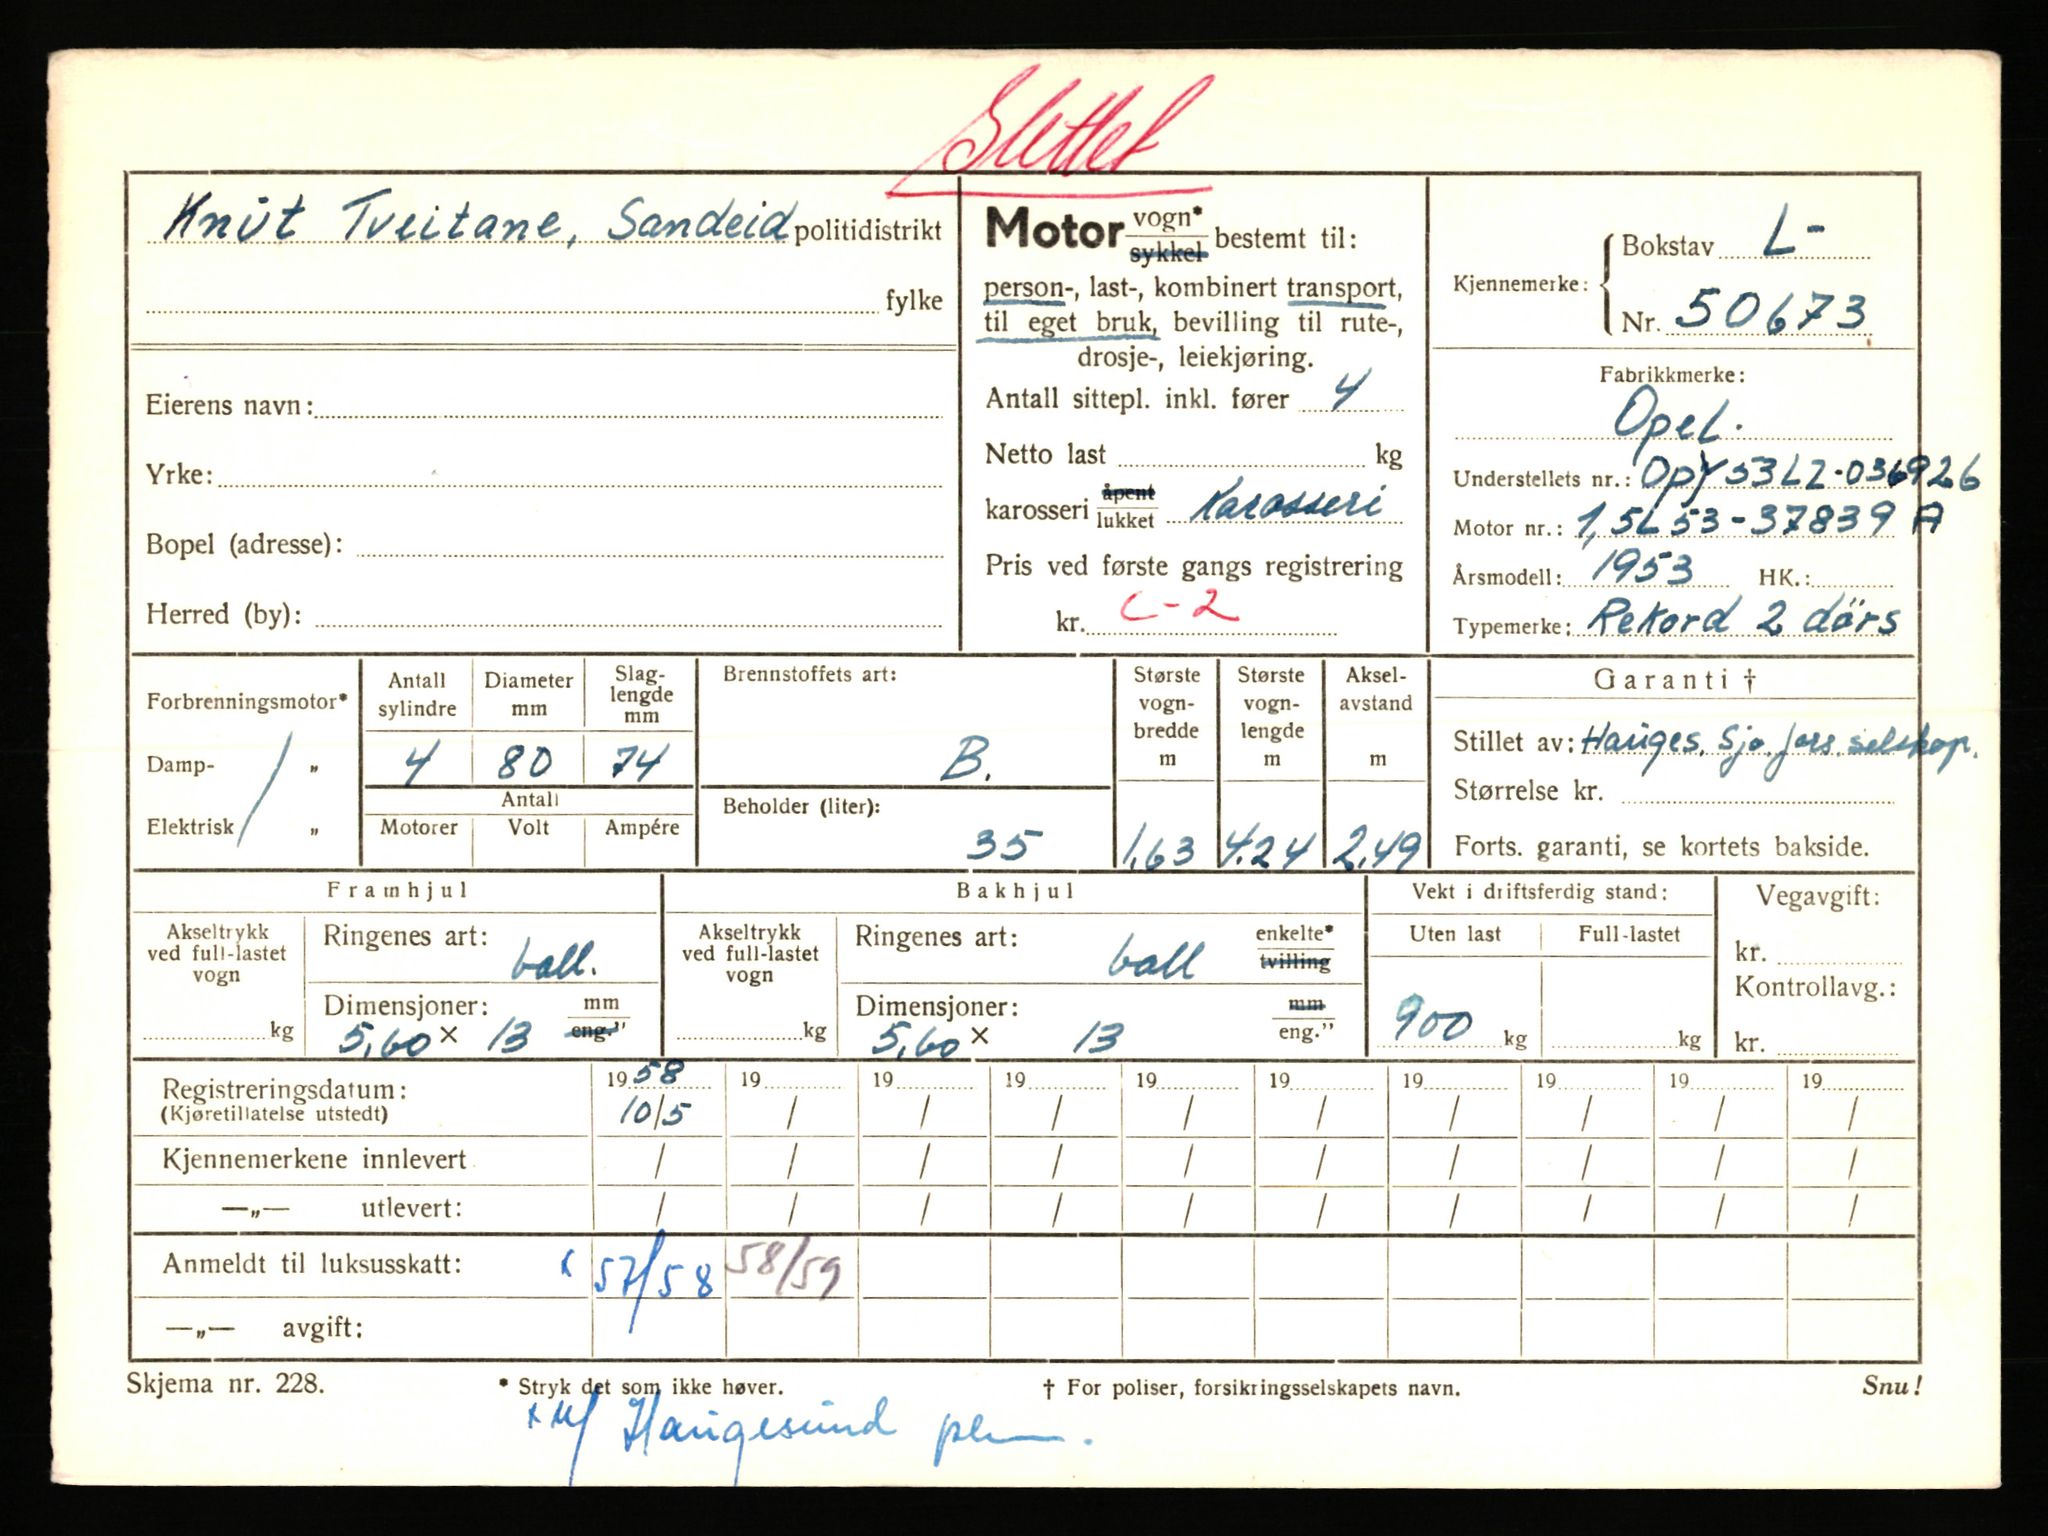 Slettet
Knut Tveitane, Sandeid politidistrikt
fylke
Eierens navn:
Yrke:
Bopel (adresse):
Herred (by):
Motor vogn* sykkel bestemt til:
person-, last-, kombinert transport,
til eget bruk, bevilling til rute-,
drosje-, leiekjøring.
Antall sittepl. inkl. fører 4
Netto last kg
karosseri åpent lukket Karosseri
Pris ved første gangs registrering
kr. L-2
Kjennemerke: Bokstav L-
Nr. 50673
Fabrikkmerke:
Opel.
Understellets nr.: OpY53LZ-036926
Motor nr.: 1,5L53-37839 A
Årsmodell: 1953 HK.:
Typemerke: Rekord 2 dörs
Forbrenningsmotor*
Damp- / „
Elektrisk „
Antall sylindre Diameter mm Slag-lengde mm
4 80 74
Antall
Motorer Volt Ampére
Brennstoffets art:
B.
Beholder (liter):
35
Største vogn-bredde m
1,63
Største vogn-lengde m
4.24
Aksel-avstand m
2,49
Garanti †
Stillet av: Hauges. Sjo. fors. selskap.
Størrelse kr.
Forts. garanti, se kortets bakside.
Framhjul
Akseltrykk ved full-lastet vogn
kg
Ringenes art: ball.
Dimensjoner: mm eng."
5,60 × 13
Bakhjul
Akseltrykk ved full-lastet vogn
kg
Ringenes art: ball enkelte* tvilling
Dimensjoner: mm eng."
5,60 × 13
Vekt i driftsferdig stand:
Uten last Full-lastet
900 kg kg
Vegavgift:
kr.
Kontrollavg.:
kr.
Registreringsdatum: 1958 19 19 19 19 19 19 19 19 19
(Kjøretillatelse utstedt) 10/5 / / / / / / / / /
Kjennemerkene innlevert / / / / / / / / / /
—„— utlevert: / / / / / / / / / /
Anmeldt til luksusskatt: x 57/58 58/59
—„— avgift:
Skjema nr. 228. * Stryk det som ikke høver. † For poliser, forsikringsselskapets navn. Snu!
Haugesund